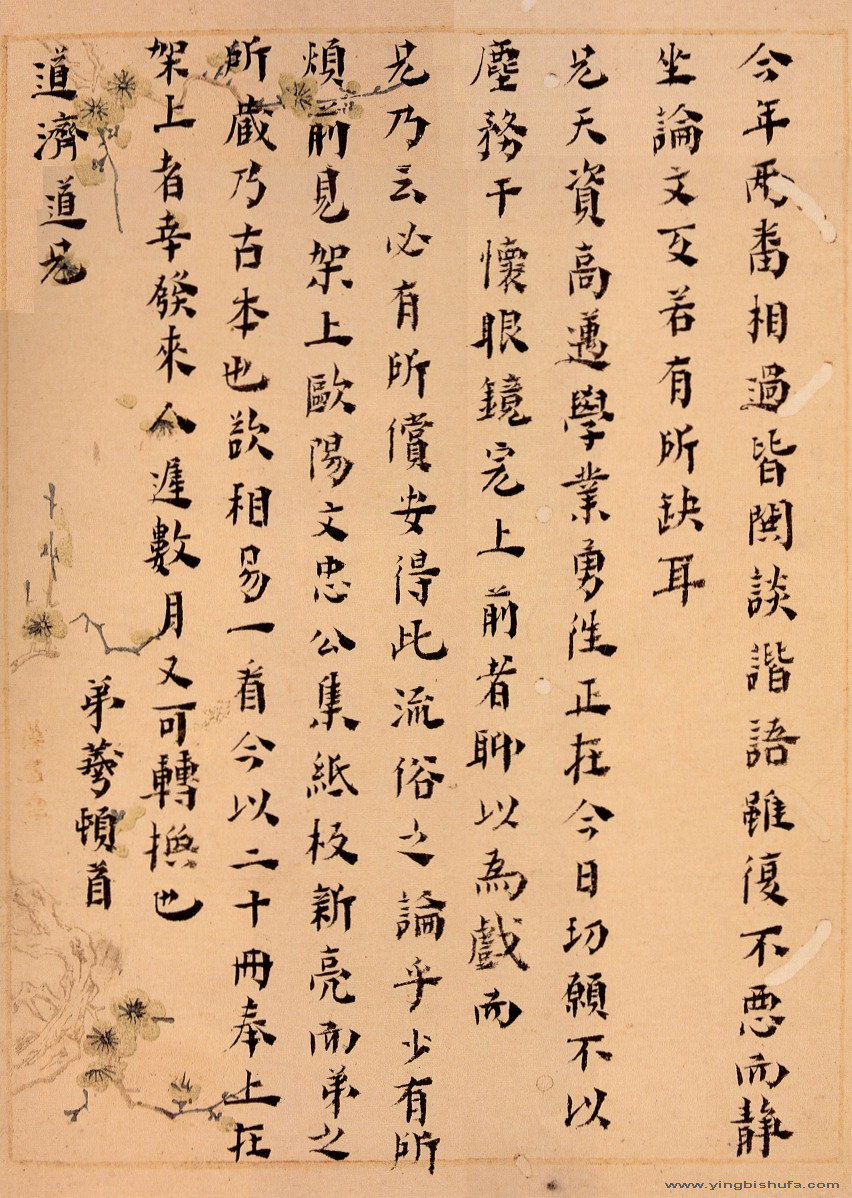 今年两番相過皆閩談諧語雖復不恶而静
坐論文互若有所缺耳
兄天資高邁學業勇往正在今日切願不以
塵務干懷眼鏡完上前者聊以為戲而
兄乃云必有所償安得此流俗之論乎少有所
煩前見架上歐陽文忠公集紙板新亮而弟之
所蔵乃古本也欲相易一看今以二十冊奉上在
架上者幸發來人遲數月又可轉換也
弟頓首
道濟道兄
www.yingbishufa.com